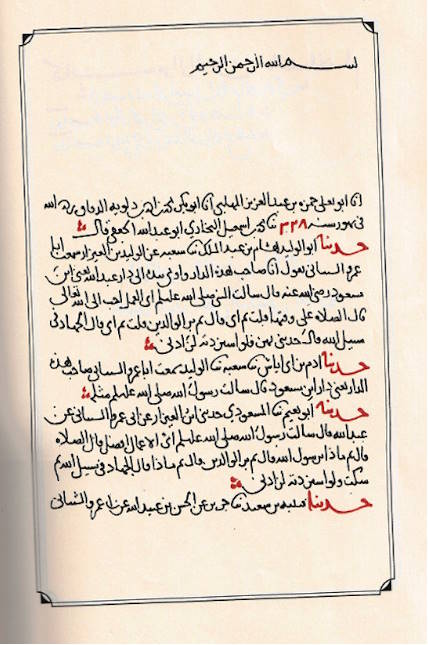 بسم الله الرحمن الرحيم
انا ابو يعلى حمزه بن عبد العزيز المهلبي انا ابو بكر محمد بن دلويه الدقاق رحمه الله
في شهور سنه ٣٣٨ ثنا محمد بن اسمعيل البخاري ابو عبد الله الجعفي قال
حدثنا ابو الوليد هشام بن عبد الملك ثنا شعبه عن الوليد بن العيزار سمعت ابا
عمرو الشيباني يقول انا صاحب هذه الدار واومى بيده الى دار عبد الله يعني ابن
مسعود رضي الله عنه قال سالت النبي صلى الله عليه وسلم اي العمل احب الى الله تعالى
قال الصلاه على وقتها قلت ثم اي قال ثم بر الوالدين قلت ثم اي قال الجهاد في
سبيل الله قال حدثني بهن فلو استزدته لزادني
حدثنا ادم بن ابي اياس ثنا شعبه ثنا الوليد سمعت ابا عمرو الشيباني صاحب هذه
الدار يعني دار ابن مسعود قال سالت رسول الله صلى الله عليه وسلم مثله
حدثنا ابو نعيم ثنا المسعودي حدثني ابن العيزار عن ابي عمرو الشيباني عن
عبد الله قال سالت رسول الله صلى الله عليه وسلم اي الاعمال افضل قال الصلاه
قال ثم ماذا يرسول الله قال ثم بر الوالدين قال ثم ماذا قال الجهاد في سبيل الله ثم
سكت ولو استزدته لزادني
حدثنا قتيبه بن سعيد ثنا جرير عن الحسن بن عبيد الله عن ابي عمرو الشيباني